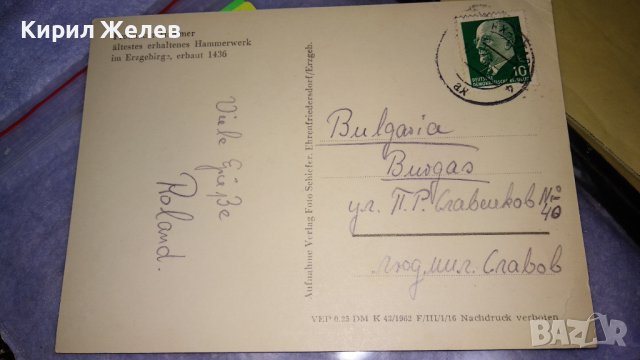 Кирил Желев
ältestes erhaltenes Hammerwerk
im Erzgebirge, erbaut 1436
Viele Grüße
Roland.
Aufnahme Verlag Foto Schiefer, Ehrenfriedersdorf/Erzgeb.
10
DEUTSCHE
Bulgaria
Burgas
ул. П. Р. Славейков № 40
людмил. Славов
VEP 0.25 DM K 43/1962 F/III/1/16 Nachdruck verboten
BAZAR